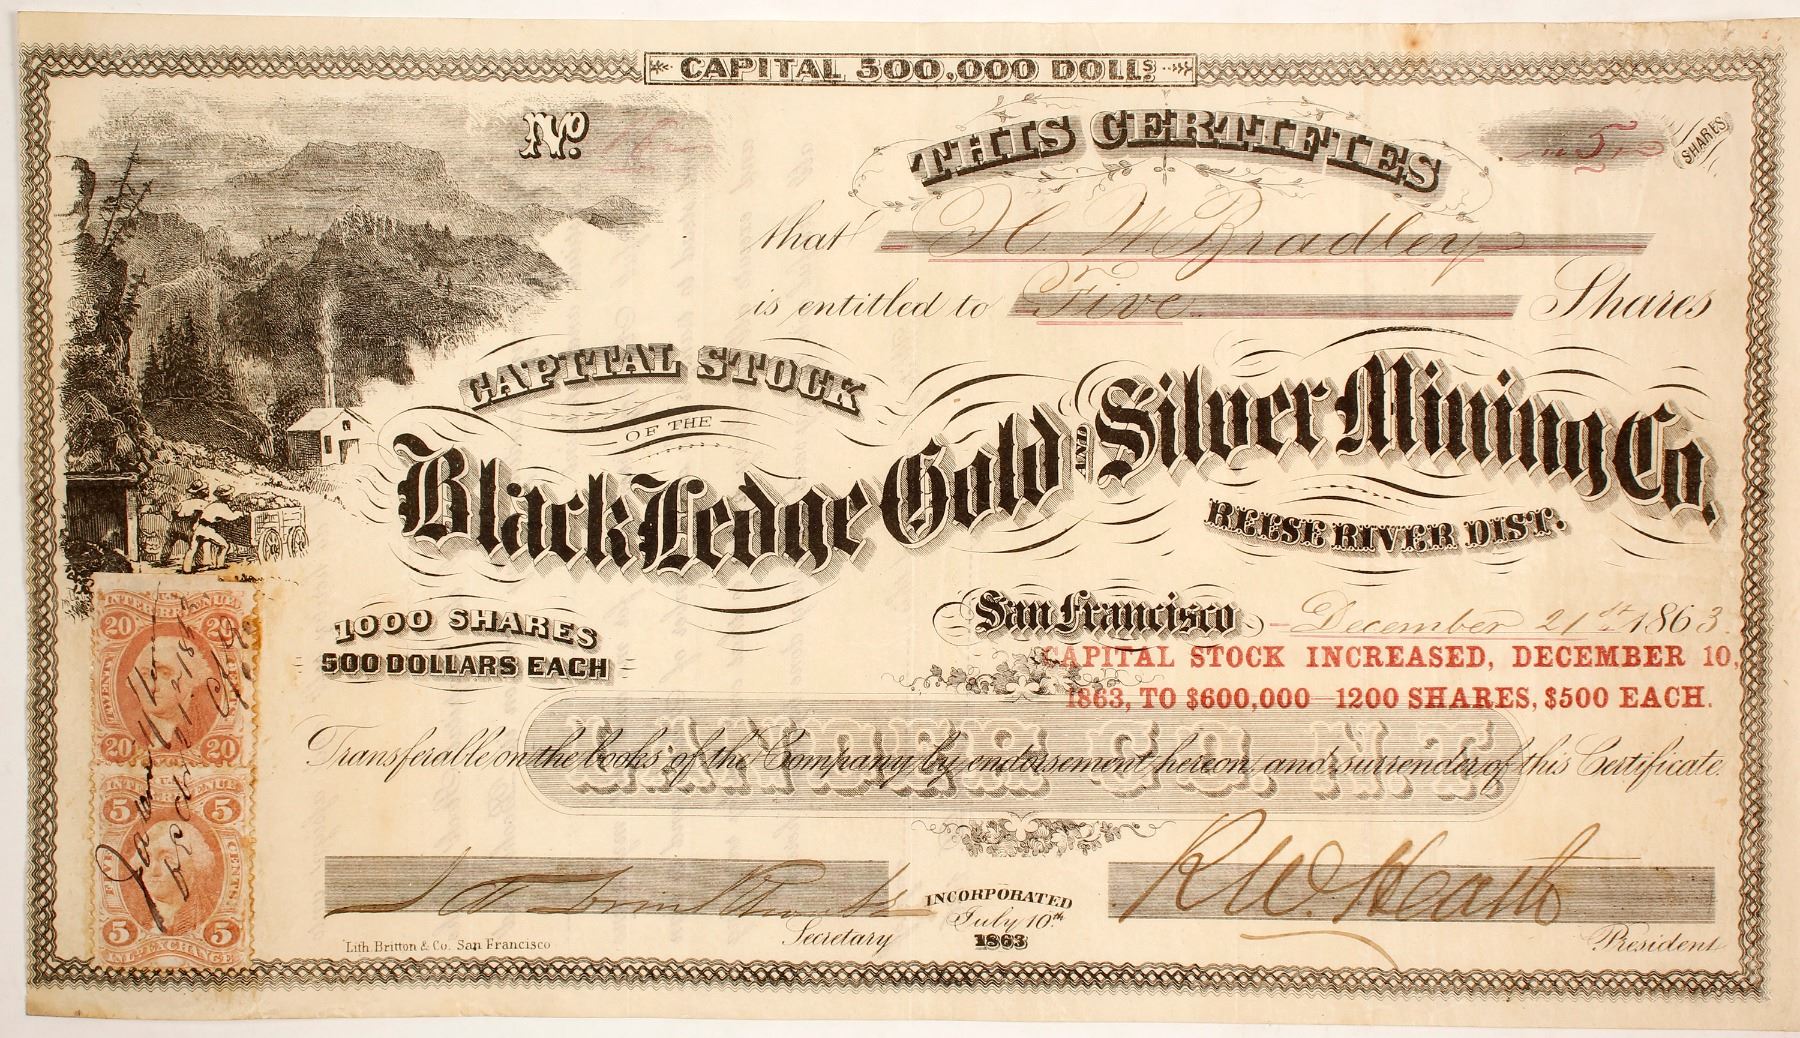 CAPITAL 500,000 DOLLS.
No. 16
THIS CERTIFIES
5 SHARES
that H. W. Bradley
is entitled to Five Shares
CAPITAL STOCK
OF THE
Black Ledge Gold AND Silver Mining Co.
REESE RIVER DIST.
1000 SHARES
500 DOLLARS EACH
San Francisco December 21st 1863.
CAPITAL STOCK INCREASED, DECEMBER 10,
1863, TO $600,000 1200 SHARES, $500 EACH.
Transferable on the books of the Company by endorsement hereon and surrender of this Certificate.
LANDER CO. N.T.
Secretary
INCORPORATED
July 10th
1863
R W. Heath
President
Lith. Britton & Co. San Francisco
U.S.
INTER. REVENUE
20 20
TWENTY CENTS
20 20
U.S.
INTER. REVENUE
5 5
FIVE CENTS
5 5
INL. EXCHANGE